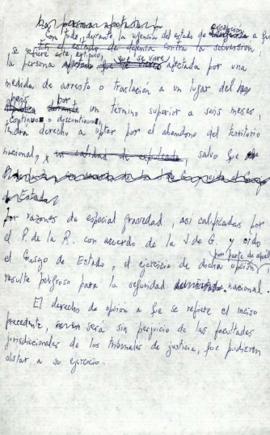 Con todo, durante la vigencia del estado de
se refiere este artículo,
la persona que se viere afectada por una
medida de arresto o traslación a un lugar del
país por un término superior a seis meses,
continuos o discontinuos,
tendrá derecho a optar por el abandono del territorio
nacional, salvo que
por razones de especial gravedad, así calificadas por
el P. de la R. con acuerdo de la J de G. y oído
el Consejo de Estado, el ejercicio de dicha opción
resulte peligroso para la seguridad nacional.
El derecho de opción a que se refiere el inciso
precedente, será sin perjuicio de las facultades
jurisdiccionales de los tribunales de justicia, que pudieren
obstar a su ejercicio.